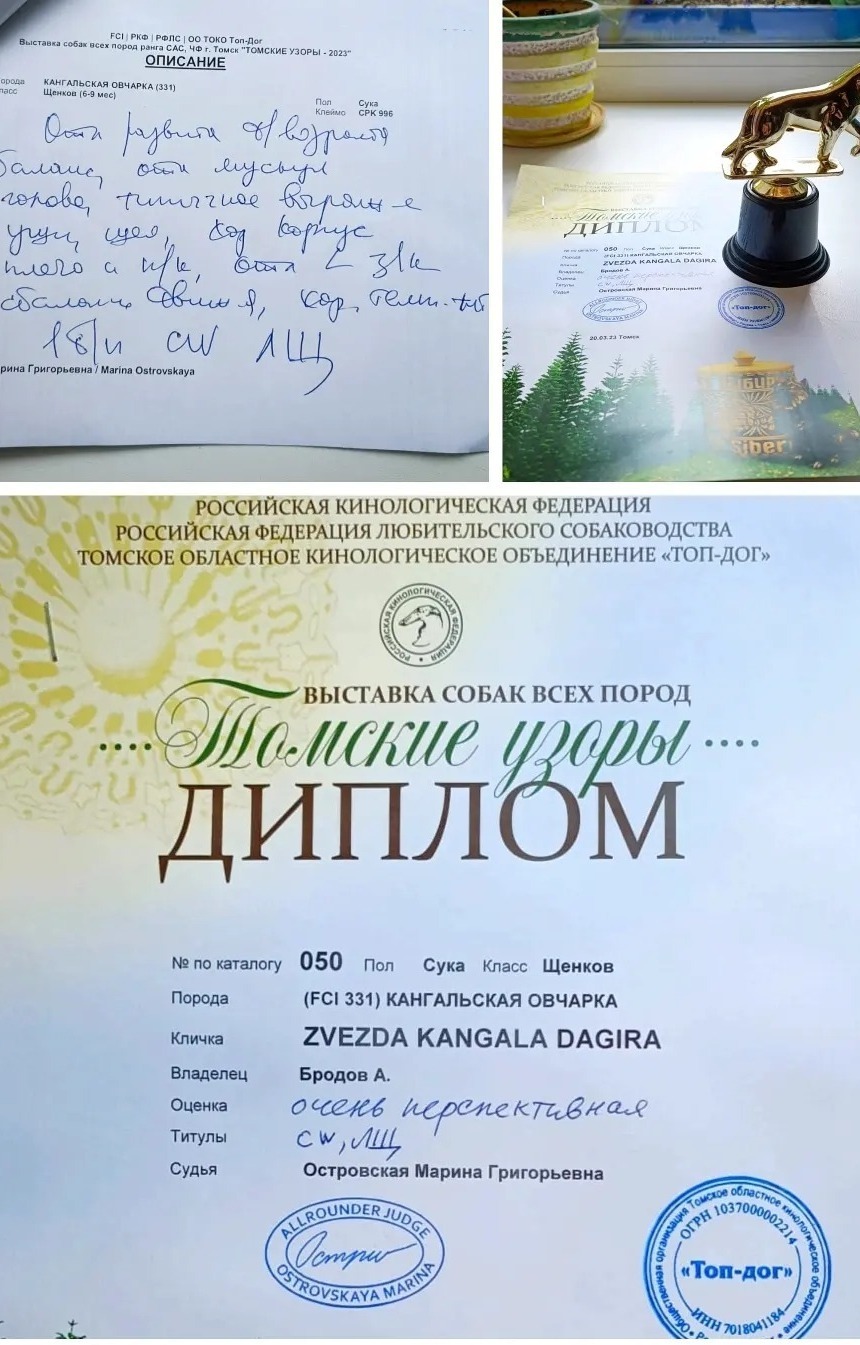 FCI | РКФ | РФЛС | ОО ТОКО Топ-Дог
Выставка собак всех пород ранга САС, ЧФ г. Томск "ТОМСКИЕ УЗОРЫ - 2023"
ОПИСАНИЕ
орода КАНГАЛЬСКАЯ ОВЧАРКА (331)
ласс Щенков (6-9 мес)
Пол Сука
Клеймо CPK 996
развита
голова, типичное
уши, шея, корпус
CW ЛЩ
рина Григорьевна / Marina Ostrovskaya
Томские
ДИПЛОМ
№ по каталогу 050 Пол Сука Класс Щенков
Порода (FCI 331) КАНГАЛЬСКАЯ ОВЧАРКА
Кличка ZVEZDA KANGALA DAGIRA
Владелец Бродов А.
Оценка очень перспективная
Титулы CW, ЛЩ
Судья Островская Марина Григорьевна
ALLROUNDER JUDGE
OSTROVSKAYA MARINA
«Топ-дог»
20.03.23 Томск
Сибирь
Siberi
РОССИЙСКАЯ КИНОЛОГИЧЕСКАЯ ФЕДЕРАЦИЯ
РОССИЙСКАЯ ФЕДЕРАЦИЯ ЛЮБИТЕЛЬСКОГО СОБАКОВОДСТВА
ТОМСКОЕ ОБЛАСТНОЕ КИНОЛОГИЧЕСКОЕ ОБЪЕДИНЕНИЕ «ТОП-ДОГ»
РОССИЙСКАЯ КИНОЛОГИЧЕСКАЯ ФЕДЕРАЦИЯ
ВЫСТАВКА СОБАК ВСЕХ ПОРОД
Томские узоры
ДИПЛОМ
№ по каталогу 050 Пол Сука Класс Щенков
Порода (FCI 331) КАНГАЛЬСКАЯ ОВЧАРКА
Кличка ZVEZDA KANGALA DAGIRA
Владелец Бродов А.
Оценка очень перспективная
Титулы CW, ЛЩ
Судья Островская Марина Григорьевна
ALLROUNDER JUDGE
OSTROVSKAYA MARINA
Общественная организация Томское областное кинологическое объединение
ОГРН 1037000002214
«Топ-дог»
ИНН 7018041184